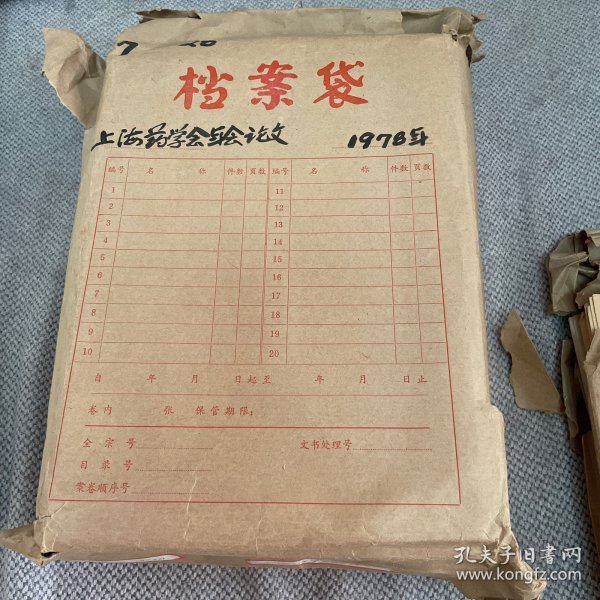 档案袋
上海药学会年会论文 1978年
编号 名 称 件数 页数 编号 名 称 件数 页数
1 11
2 12
3 13
4 14
5 15
6 16
7 17
8 18
9 19
10 20
自 年 月 日起至 年 月 日止
卷内 张 保管期限:
全宗号 文书处理号
目录号
案卷顺序号
孔夫子旧书网
www.kongfz.com